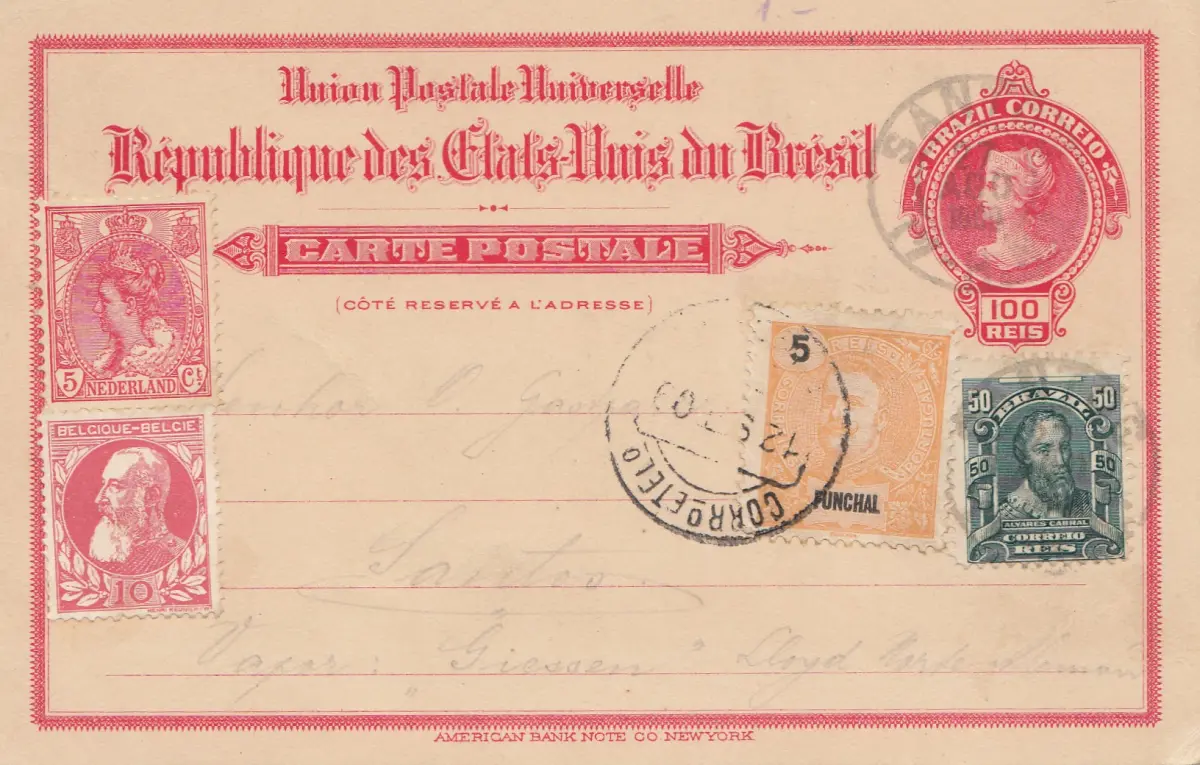 1.-
Union Postale Universelle
République des Etats-Unis du Brésil
BRAZIL CORREIO
SAN
100
REIS
CARTE POSTALE
(CÔTÉ RESERVÉ A L'ADRESSE)
5 NEDERLAND Ct
BELGIQUE-BELGIE
10
5
FUNCHAL
12 09
CORRO E TELO
50 BRAZIL 50
50 50
ALVARES CABRAL
CORREIO
REIS
Senhor
Santos
Vapor: "Giessen" Lloyd
AMERICAN BANK NOTE CO NEW YORK